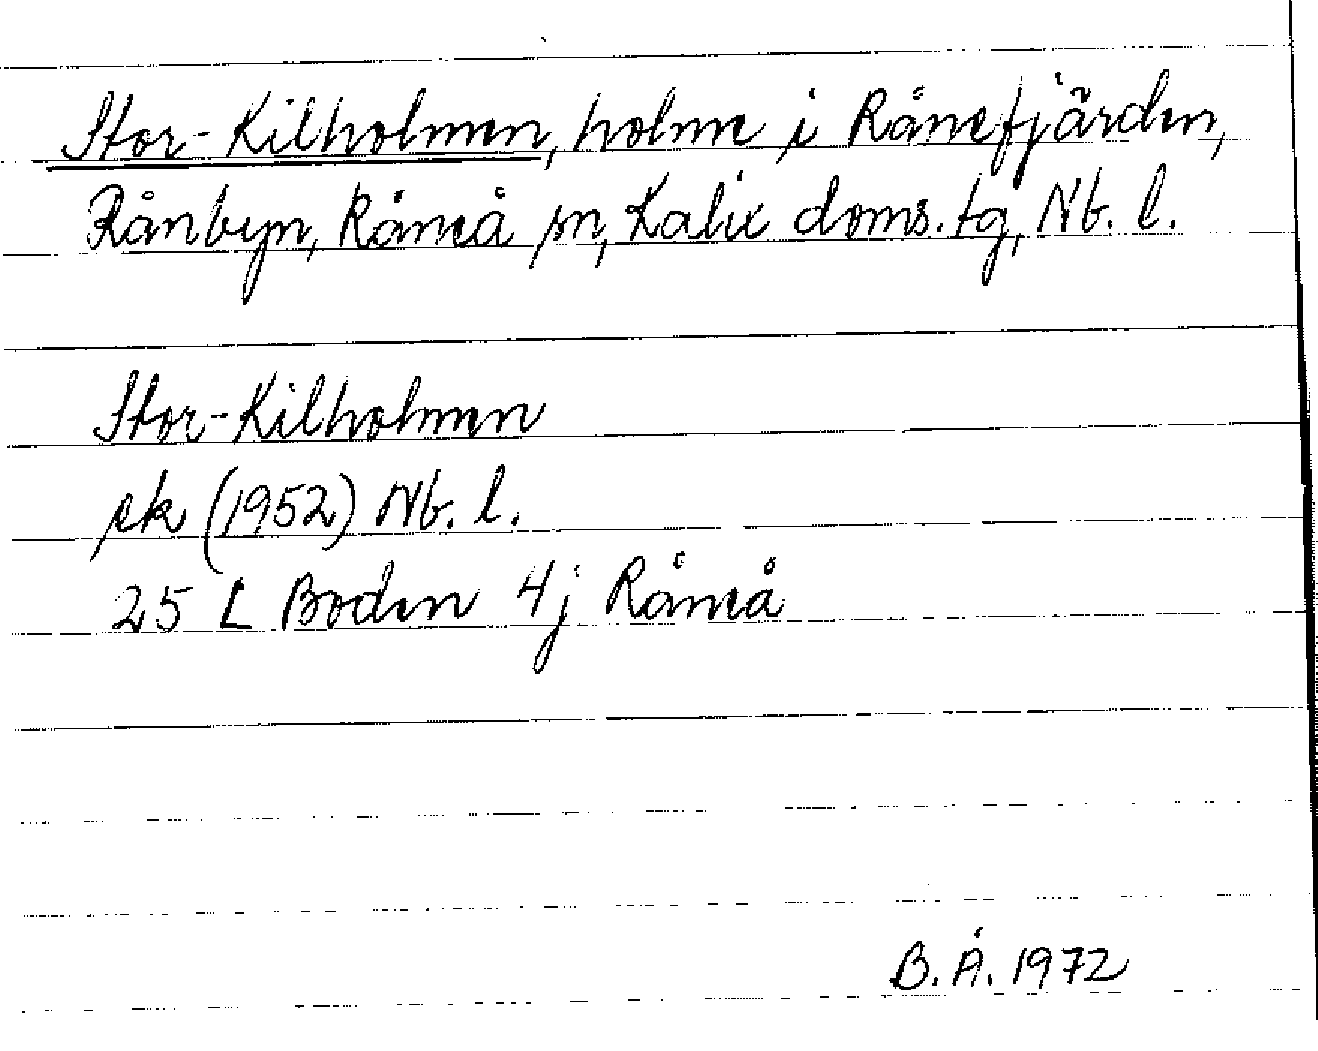 Stor-Kilholmen, holme i Rånefjärden,
Rånbyn, Råneå sn, Kalix doms.tg, Nb. l.
Stor-Kilholmen
ek (1952) Nb. l.
25 L Boden 4j Råneå
B.Å. 1972